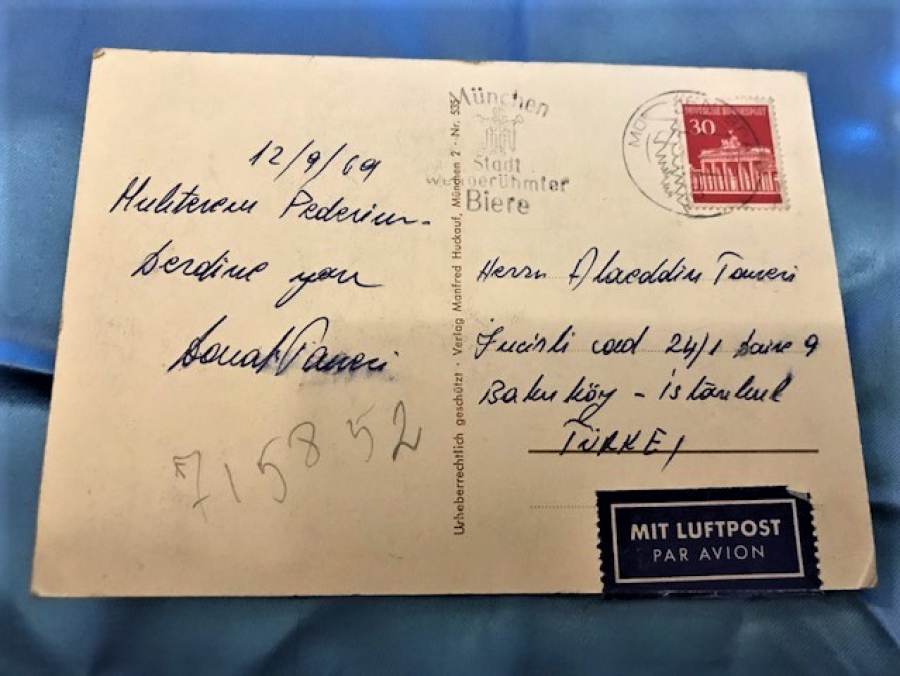 12/9/69
Muhterem Pederim-
Serdine yan
Sonat Taneri
715852
Urheberrechtlich geschützt · Verlag Manfred Huckauf, München 2 · Nr. 535
München
Stadt
weltberühmter
Biere
DEUTSCHE BUNDESPOST
30
Herrn Alaeddin Taneri
İncirli cad 24/1 Daire 9
Bakırköy - İstanbul
TÜRKEI
MIT LUFTPOST
PAR AVION